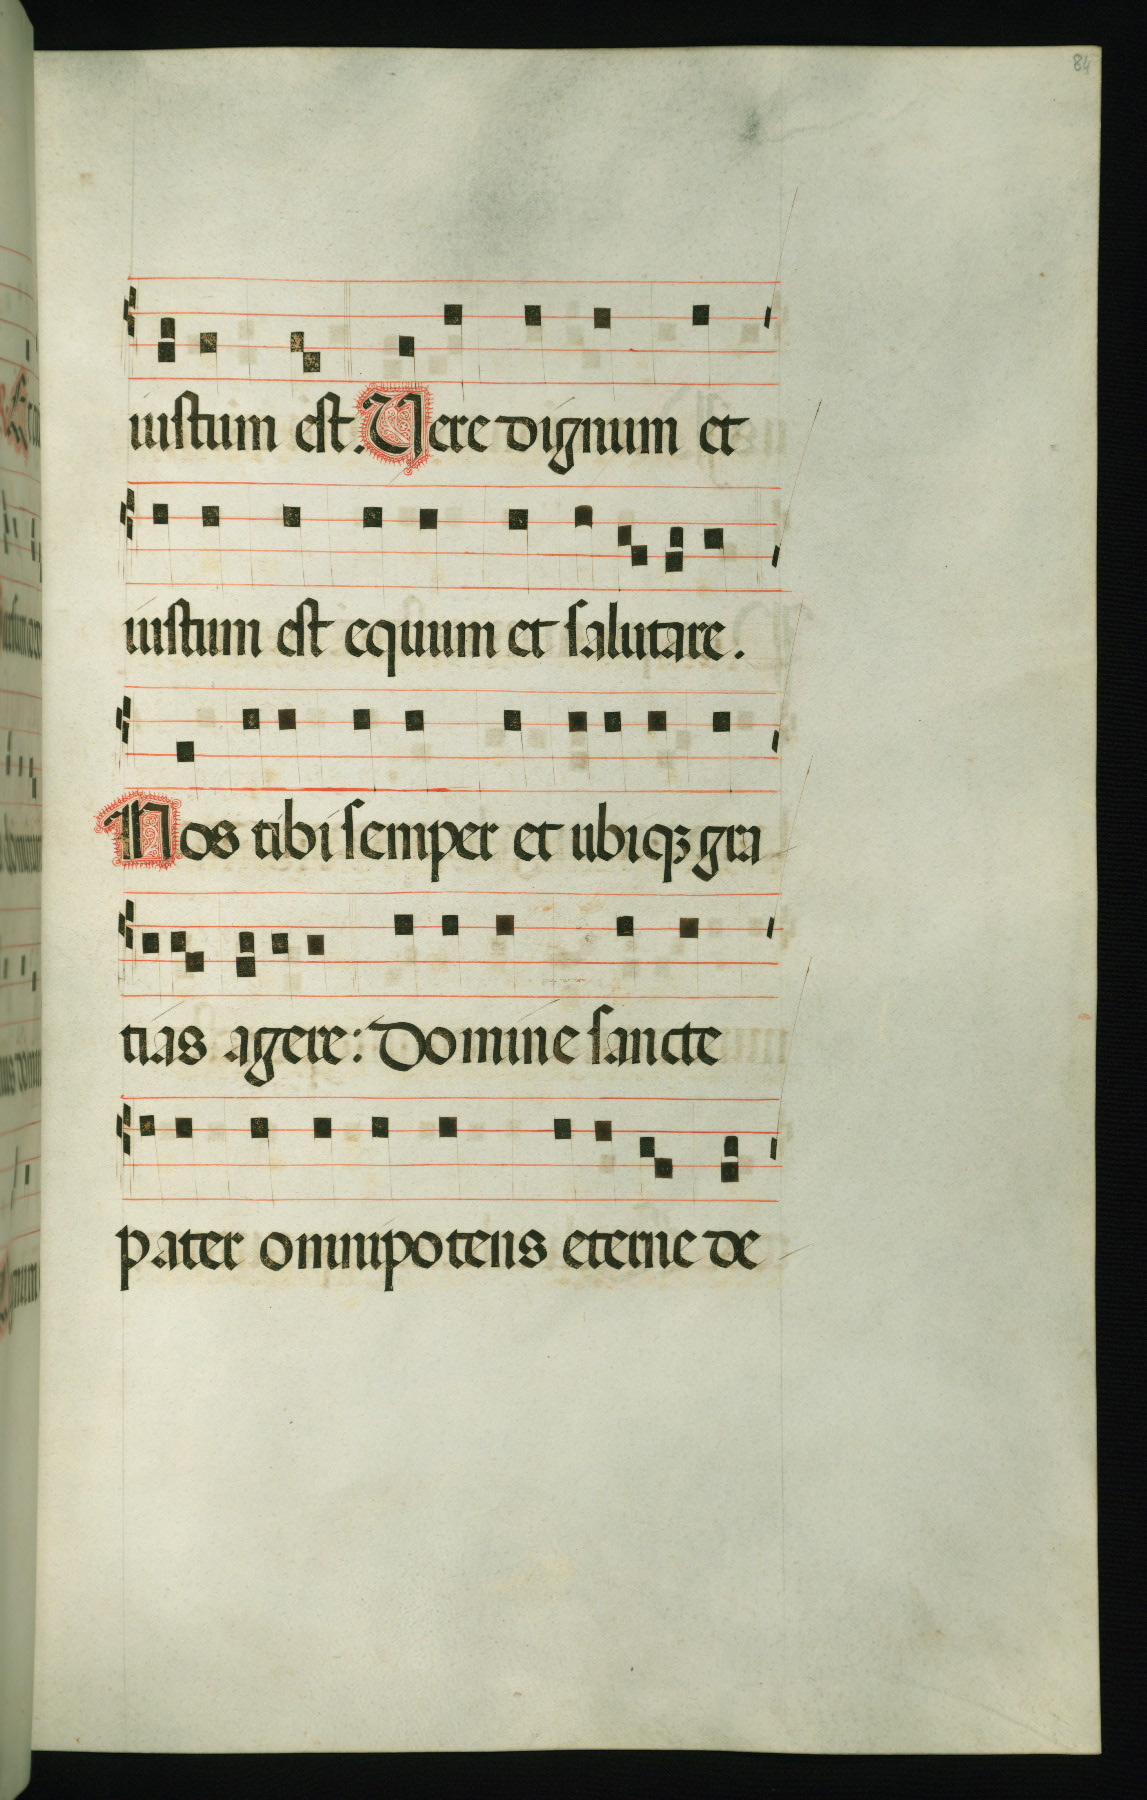 84
iustum est. Uere dignum et
iustum est equum et salutare.
Nos tibi semper et ubiqꝫ gra
tias agere: Domine sancte
pater omnipotens eterne de